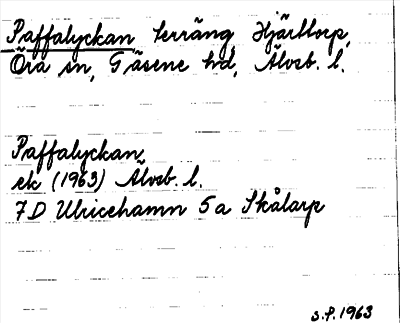 Paffalyckan terräng Hjärttorp,
Öra sn, Gäsene hd, Älvsb. l.
Paffalyckan
ek (1963) Älvsb. l.
7D Ulricehamn 5a Skålarp
S.P. 1963